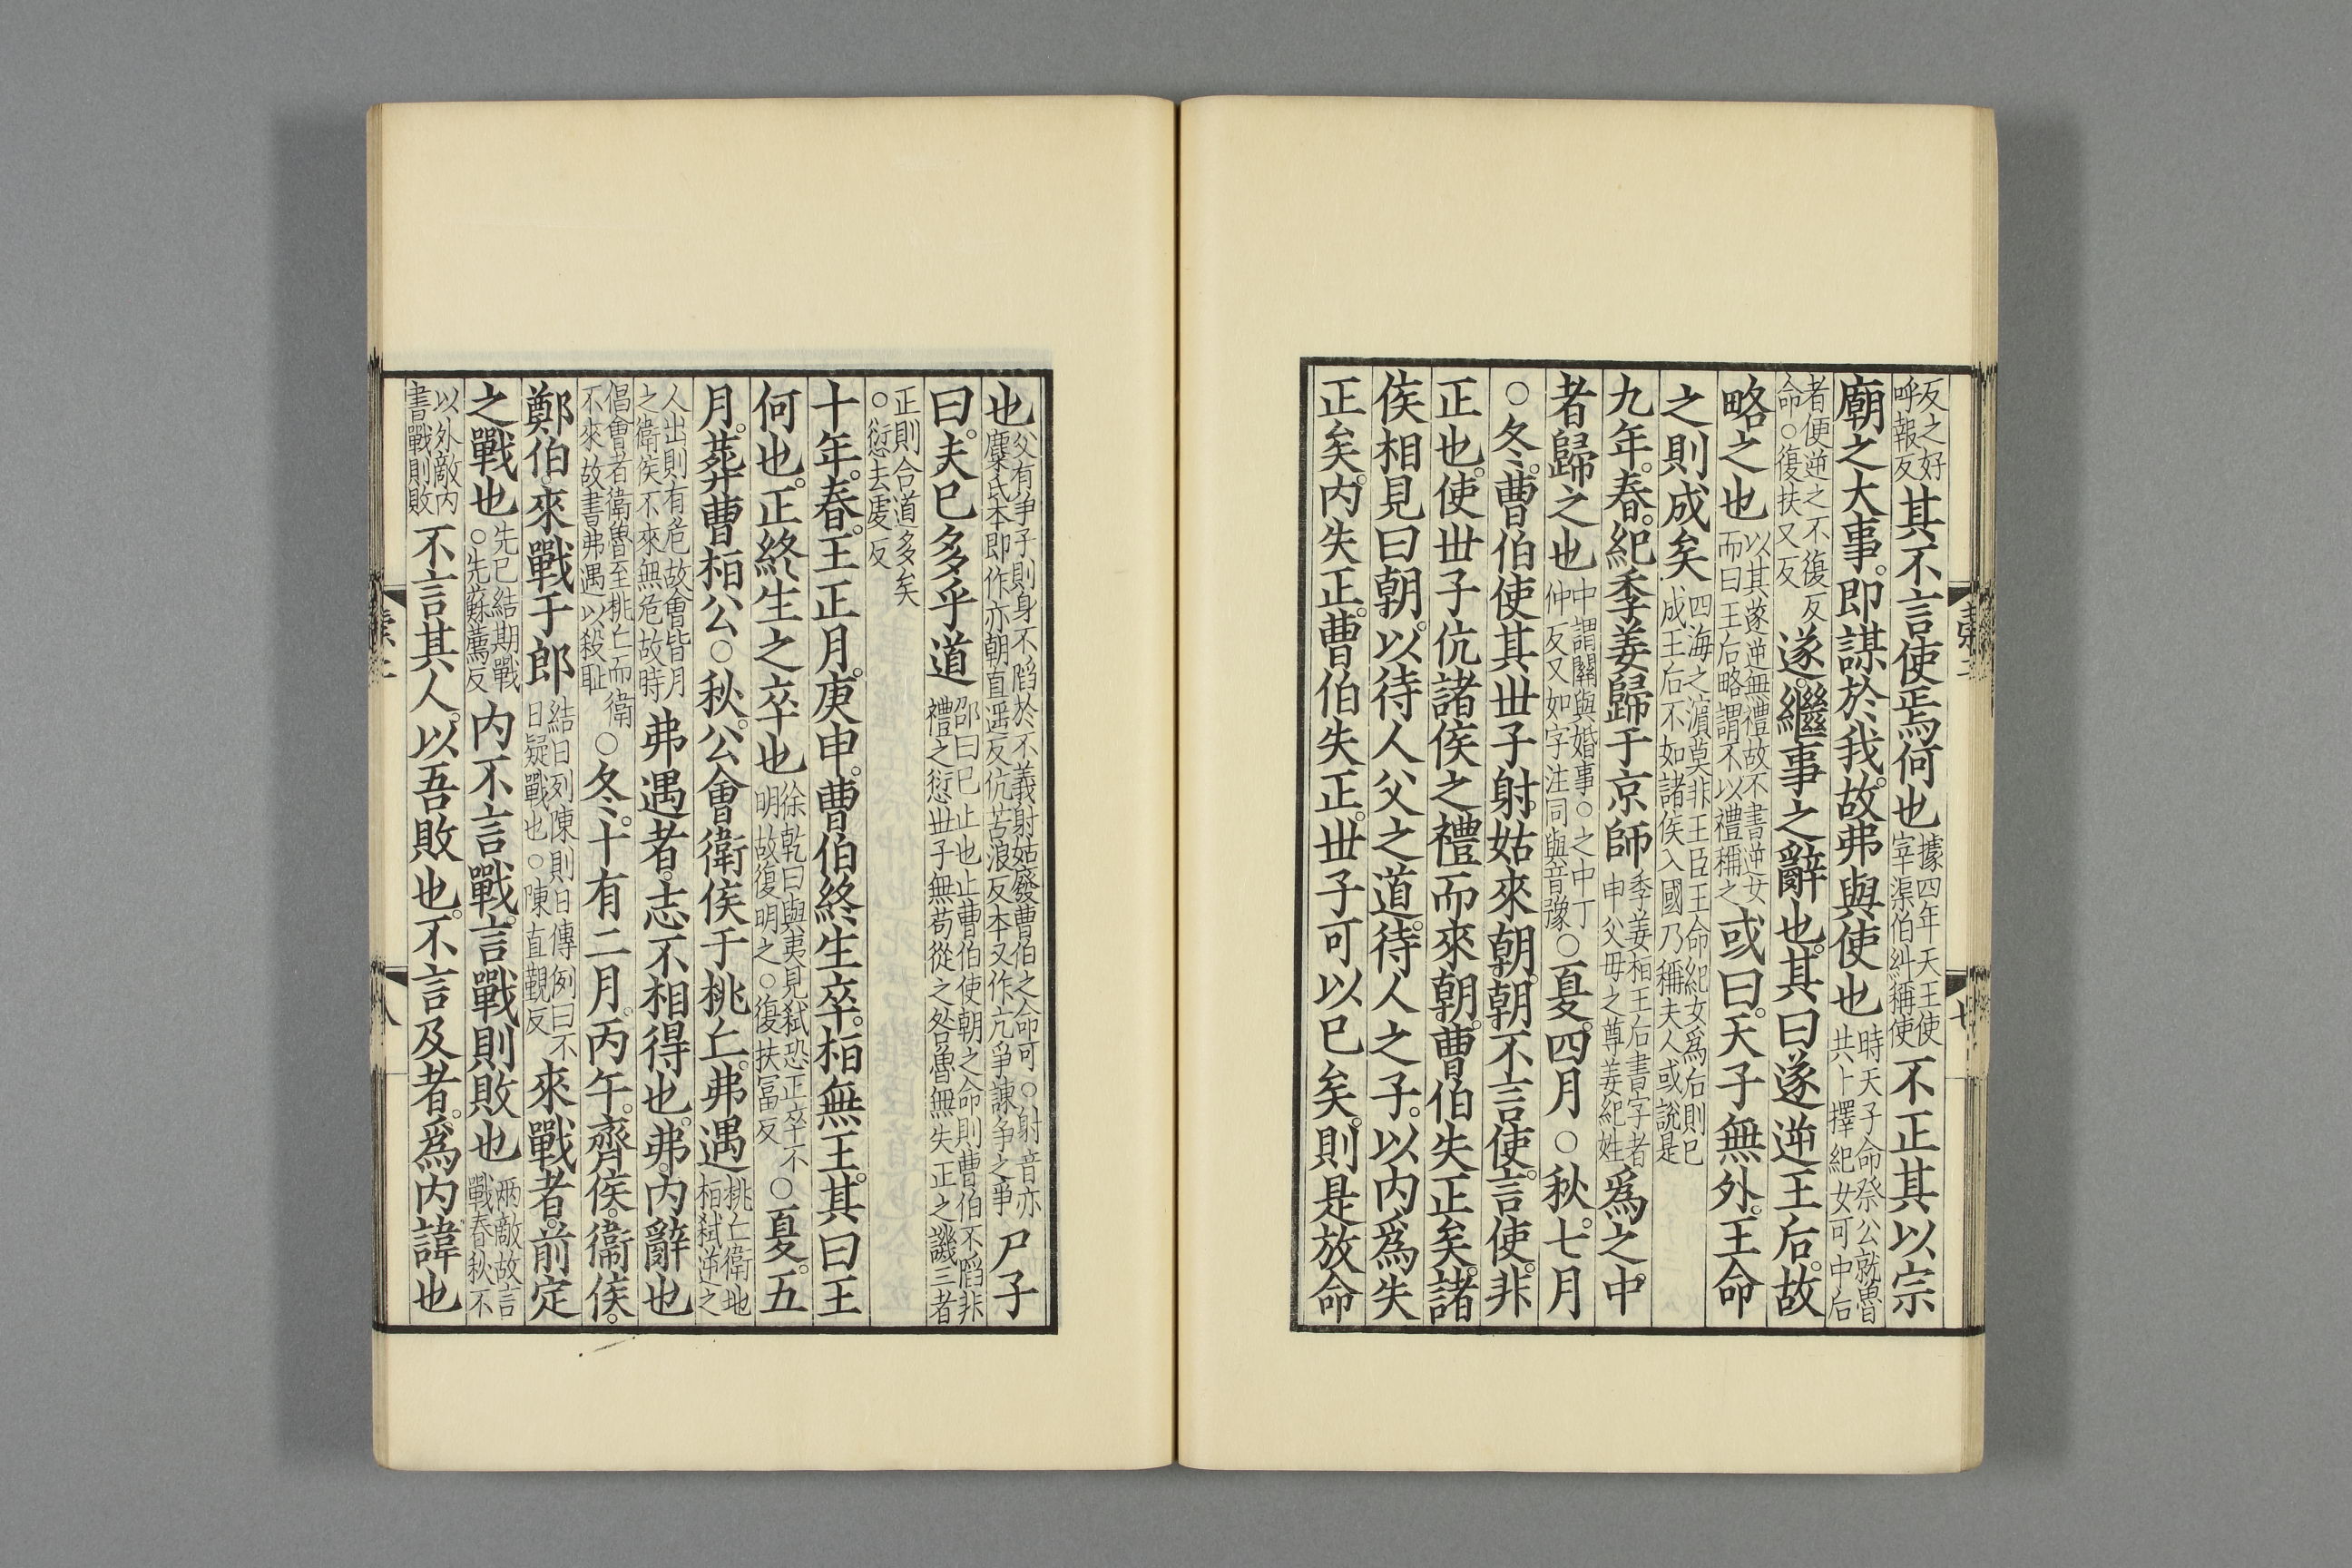 反之好呼報反其不言使焉何也據四年天王使宰渠伯糾稱使不正其以宗
廟之大事。即謀於我。故弗與使也時天子命祭公就魯共卜擇紀女可中后
者便逆之不復反命○復扶又反遂。繼事之辭也。其曰遂逆王后。故
略之也以其遂逆無禮故不書逆女而曰王后略謂不以禮稱之或曰。天子無外。王命
之則成矣四海之濵莫非王臣王命紀女爲后則已成王后不如諸侯入國乃稱夫人或說是
九年。春。紀季姜歸于京師季姜桓王后書字者申父母之尊姜紀姓爲之中
者歸之也中謂關與婚事○之中丁仲反又如字注同與音豫○夏。四月○秋。七月
○冬。曹伯使其丗子射姑來朝。朝不言使。言使。非
正也。使丗子伉諸侯之禮而來朝。曹伯失正矣。諸
侯相見曰朝。以待人父之道。待人之子。以内爲失
正矣。内失正。曹伯失正。丗子可以已矣。則是放命
也父有爭子則身不䧟於不義射姑廢曹伯之命可○射音亦麋氏本即作亦朝直遥反伉苦浪反本又作亢爭諫爭之爭尸子
曰。夫已多乎道邵曰已止也止曹伯使朝之命則曹伯不䧟非禮之愆丗子無苟從之咎魯無失正之譏三者
正則合道多矣○愆去虔反
十年。春。王正月。庚申。曹伯終生卒。桓無王。其曰王
何也。正終生之卒也徐乾曰與夷見弑恐正卒不明故復明之○復扶冨反○夏。五
月。葬曹桓公○秋。公會衛侯于桃丘。弗遇桃丘衛地桓弑逆之
人出則有危故會皆月之衛侯不來無危故時弗遇者。志不相得也。弗。内辭也
倡會者衛魯至桃丘而衛不來故書弗遇以殺恥○冬。十有二月。丙午。齊侯。衛侯。
鄭伯。來戰于郎結日列陳則日傳例曰不日疑戰也○陳直覲反來戰者。前定
之戰也先已結期戰○先蘇薦反内不言戰。言戰則敗也兩敵故言戰春秋不
以外敵内書戰則敗不言其人。以吾敗也。不言及者。爲内諱也